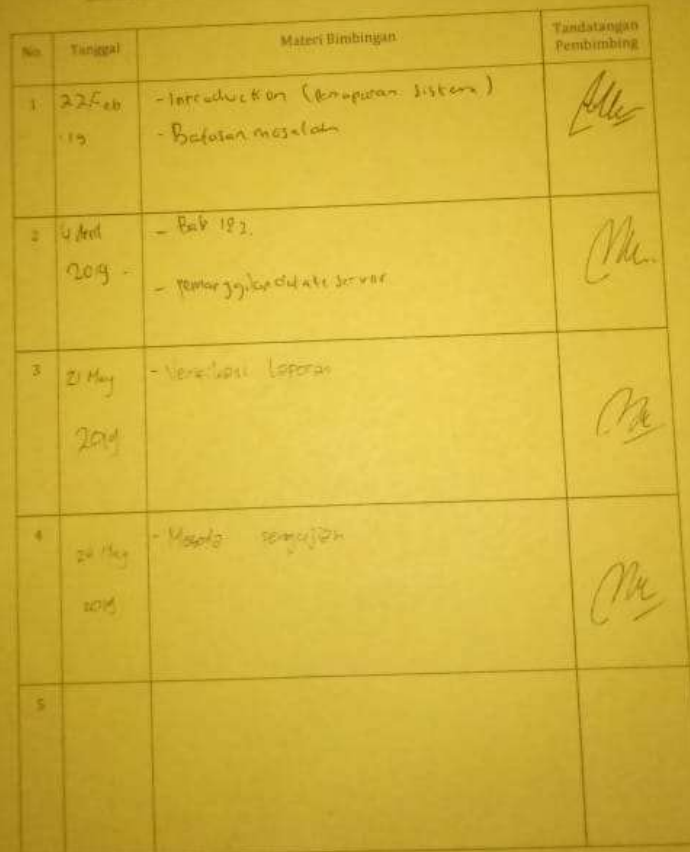 No Tanggal Materi Bimbingan Tandatangan Pembimbing
1 22 Feb '19
- Introduction (           sistem)
- Batasan masalah
2 4 April 2019 -
- Bab 1&2.
- pemanggilan         server
3 21 May 2019
- Verifikasi Laporan
4 May 2019
- pengujian
5